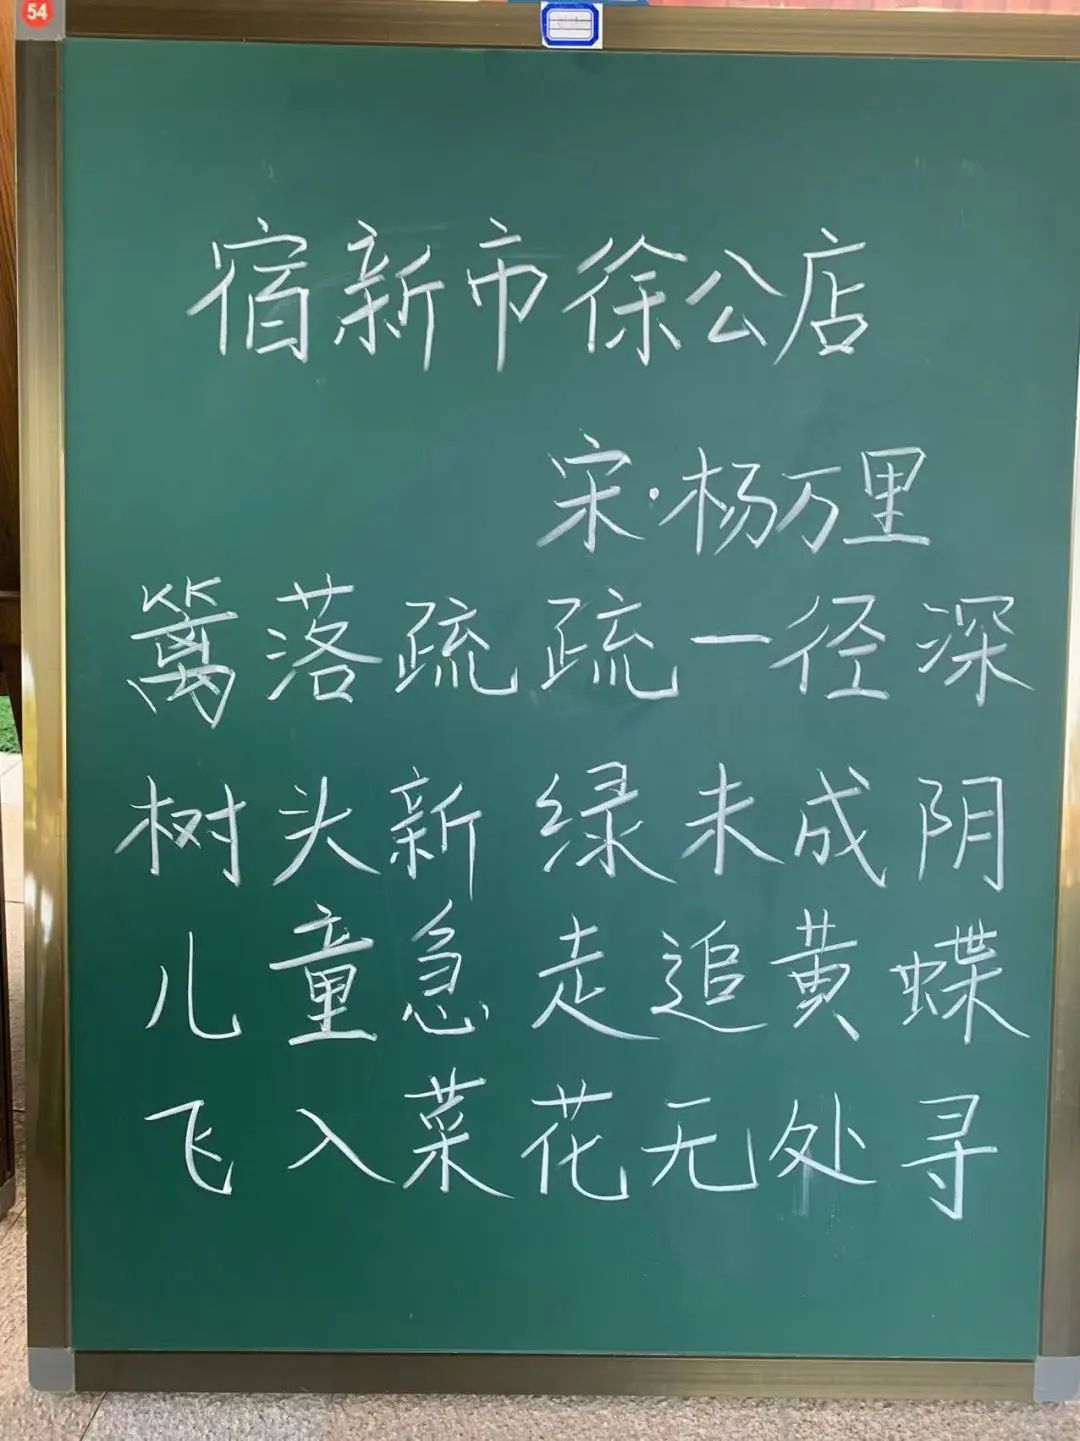 54
宿新市徐公店
宋·杨万里
篱落疏疏一径深
树头新绿未成阴
儿童急走追黄蝶
飞入菜花无处寻